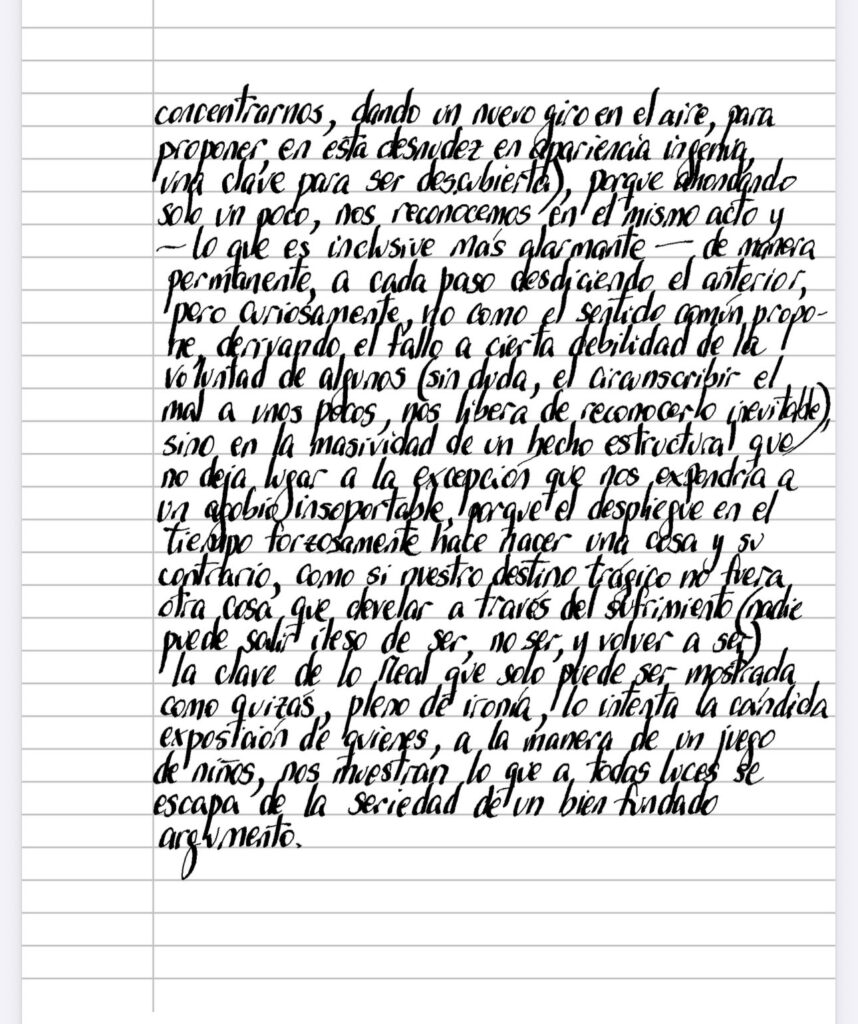 concentrarnos, dando un nuevo giro en el aire, para
proponer, en esta desnudez en apariencia ingenua,
una clave para ser descubierta), porque ahondando
solo un poco, nos reconocemos en el mismo acto y
— lo que es inclusive más alarmante — de manera
permanente, a cada paso desdiciendo el anterior,
pero curiosamente, no como el sentido común propo-
ne, derivando el fallo a cierta debilidad de la
voluntad de algunos (sin duda, el circunscribir el
mal a unos pocos, nos libera de reconocerlo inevitable),
sino en la masividad de un hecho estructural que
no deja lugar a la excepción que nos expondría a
un agobio insoportable, porque el despliegue en el
tiempo forzosamente hace hacer una cosa y su
contrario, como si nuestro destino trágico no fuera
otra cosa que develar a través del sufrimiento (nadie
puede salir ileso de ser, no ser, y volver a ser)
la clave de lo Real que solo puede ser mostrada
como quizás, pleno de ironía, lo intenta la cándida
exposición de quienes, a la manera de un juego
de niños, nos muestran lo que a todas luces se
escapa de la seriedad de un bien fundado
argumento.